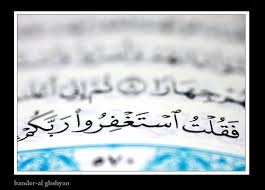 جِهَارًا ۝ ثُمَّ إِنِّىٓ
فَقُلْتُ ٱسْتَغْفِرُوا۟ رَبَّكُمْ
٥٧٠
bander-al ghshyan